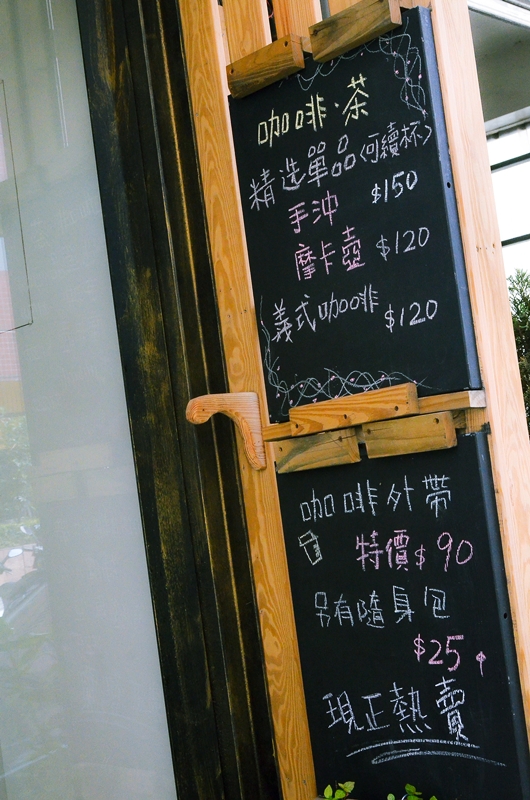 咖啡・茶
精选單品(可續杯)
手沖 $150
摩卡壺 $120
義式咖啡 $120
咖啡外帶
特價$90
另有隨身包
$25↑
現正熱賣